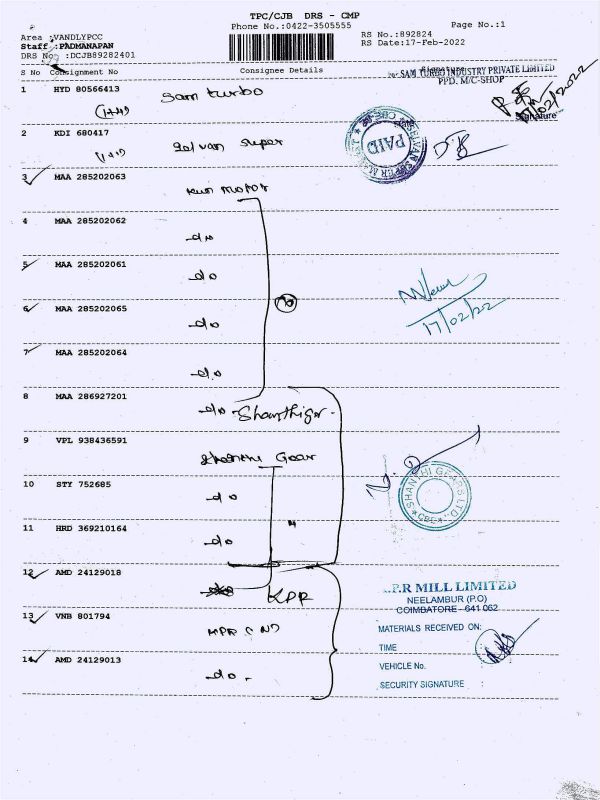 TPC/CJB DRS - CMP
Phone No.:0422-3505555
Page No.:1
Area :VANDLYPCC
Staff :PADMANAPAN
DRS No :DCJB89282401
RS No.:892824
RS Date:17-Feb-2022
S No Consignment No Consignee Details Signature
For SAM TURBO INDUSTRY PRIVATE LIMITED
PPD. M/C-SHOP
Signature
17/02/2022
1 HYD 80566413 Sam turbo
2 KDI 680417 Selvan super
SELVAN SUPER MARKET
PAID
3 MAA 285202063
4 MAA 285202062 do
5 MAA 285202061 do
6 MAA 285202065 do
17/02/22
7 MAA 285202064 do
8 MAA 286927201 do Shanthiger
9 VPL 938436591 Shanthi Gear
10 STY 752685 do
SHANTHI GEARS LTD.,
CBE
11 HRD 369210164 do
12 AMD 24129018 KPR
K.P.R MILL LIMITED
NEELAMBUR (P.O)
COIMBATORE - 641 062
13 VNB 801794
MATERIALS RECEIVED ON:
TIME :
14 AMD 24129013 do
VEHICLE No. :
SECURITY SIGNATURE :